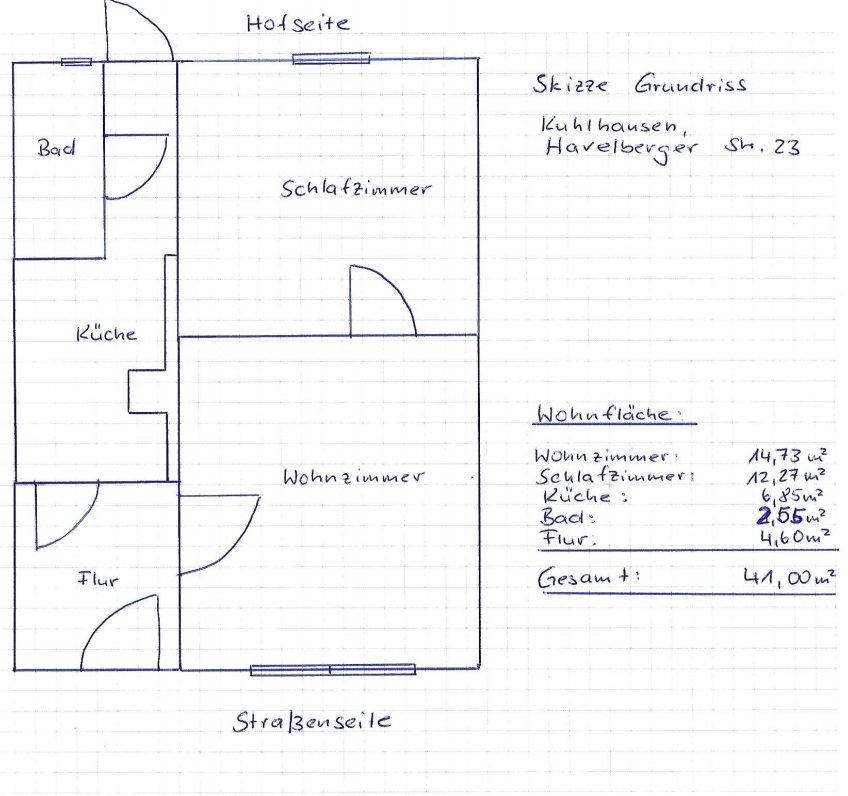 Hofseite
Skizze Grundriss
Kuhlhausen,
Havelberger Str. 23
Bad
Schlafzimmer
Küche
Wohnzimmer
Flur
Straßenseite
Wohnfläche:
Wohnzimmer: 14,73 m²
Schlafzimmer: 12,27 m²
Küche: 6,85m²
Bad: 2,55m²
Flur: 4,60m²
Gesamt: 41,00m²